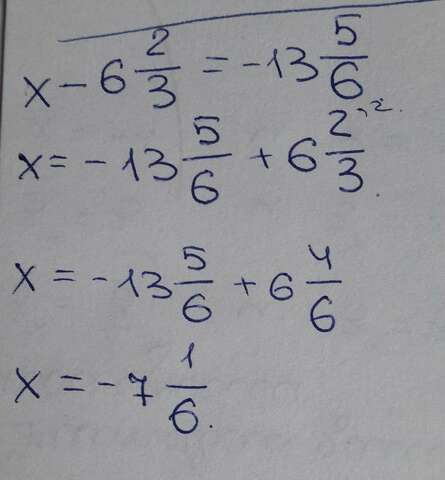 x - 6 2/3 = -13 5/6
x = -13 5/6 + 6 2/3 ·2
x = -13 5/6 + 6 4/6
x = -7 1/6.